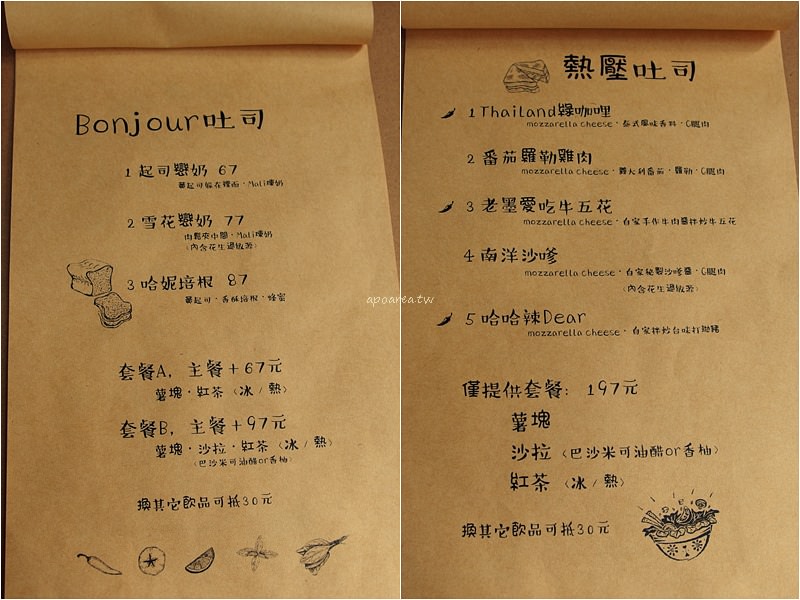 Bonjour吐司
1 起司戀奶 67
蕃起司躲在裡面．Mali煉奶
2 雪花戀奶 77
肉鬆夾中間．Mali煉奶
(內含花生過敏源)
3 哈妮培根 87
蕃起司．香酥培根．蜂蜜
套餐A，主餐＋67元
薯塊．紅茶〈冰／熱〉
套餐B，主餐＋97元
薯塊．沙拉．紅茶〈冰／熱〉
〈巴沙米可油醋or香柚〉
換其它飲品可抵30元
熱壓吐司
1 Thailand綠咖哩
mozzarella cheese．泰式風味香料．C腿肉
2 番茄羅勒雞肉
mozzarella cheese．義大利番茄．羅勒．C腿肉
3 老墨愛吃牛五花
mozzarella cheese．自家手作牛肉醬拌炒牛五花
4 南洋沙嗲
mozzarella cheese．自家秘製沙嗲醬．C腿肉
〈內含花生過敏源〉
5 哈哈辣Dear
mozzarella cheese．自家拌炒台味打拋豬
僅提供套餐：197元
薯塊
沙拉〈巴沙米可油醋or香柚〉
紅茶〈冰／熱〉
換其它飲品可抵30元
apoarea.tw